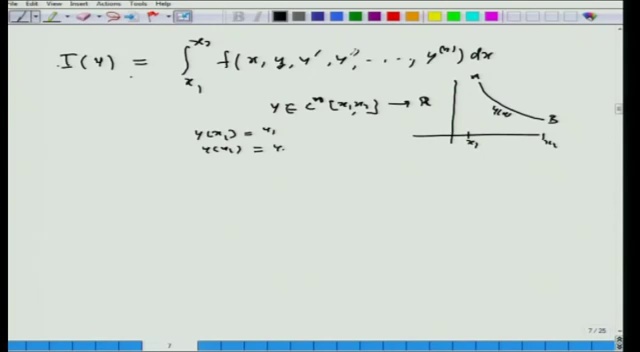 File Edit View Insert Actions Tools Help
I(y) = ∫_{x₁}^{x₂} f(x, y, y', y'', ..., y^{(n)}) dx
y ∈ Cⁿ[x₁,x₂] → R
y(x₁) = y₁
y(x₂) = y
A
y(x)
B
x₁
x₂
7 / 25
7